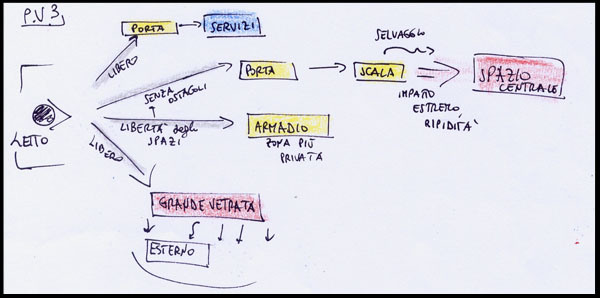 P.V3
PORTA
SERVIZI
LIBERO
SELVAGGIO
PORTA
SCALA
SPAZIO
CENTRALE
SENZA
OSTACOLI
IMPATTO
ESTREMO
RIPIDITÀ
LETTO
LIBERTÀ degli
SPAZI
ARMADIO
ZONA PIÙ
PRIVATA
LIBERO
GRANDE VETRATA
ESTERNO